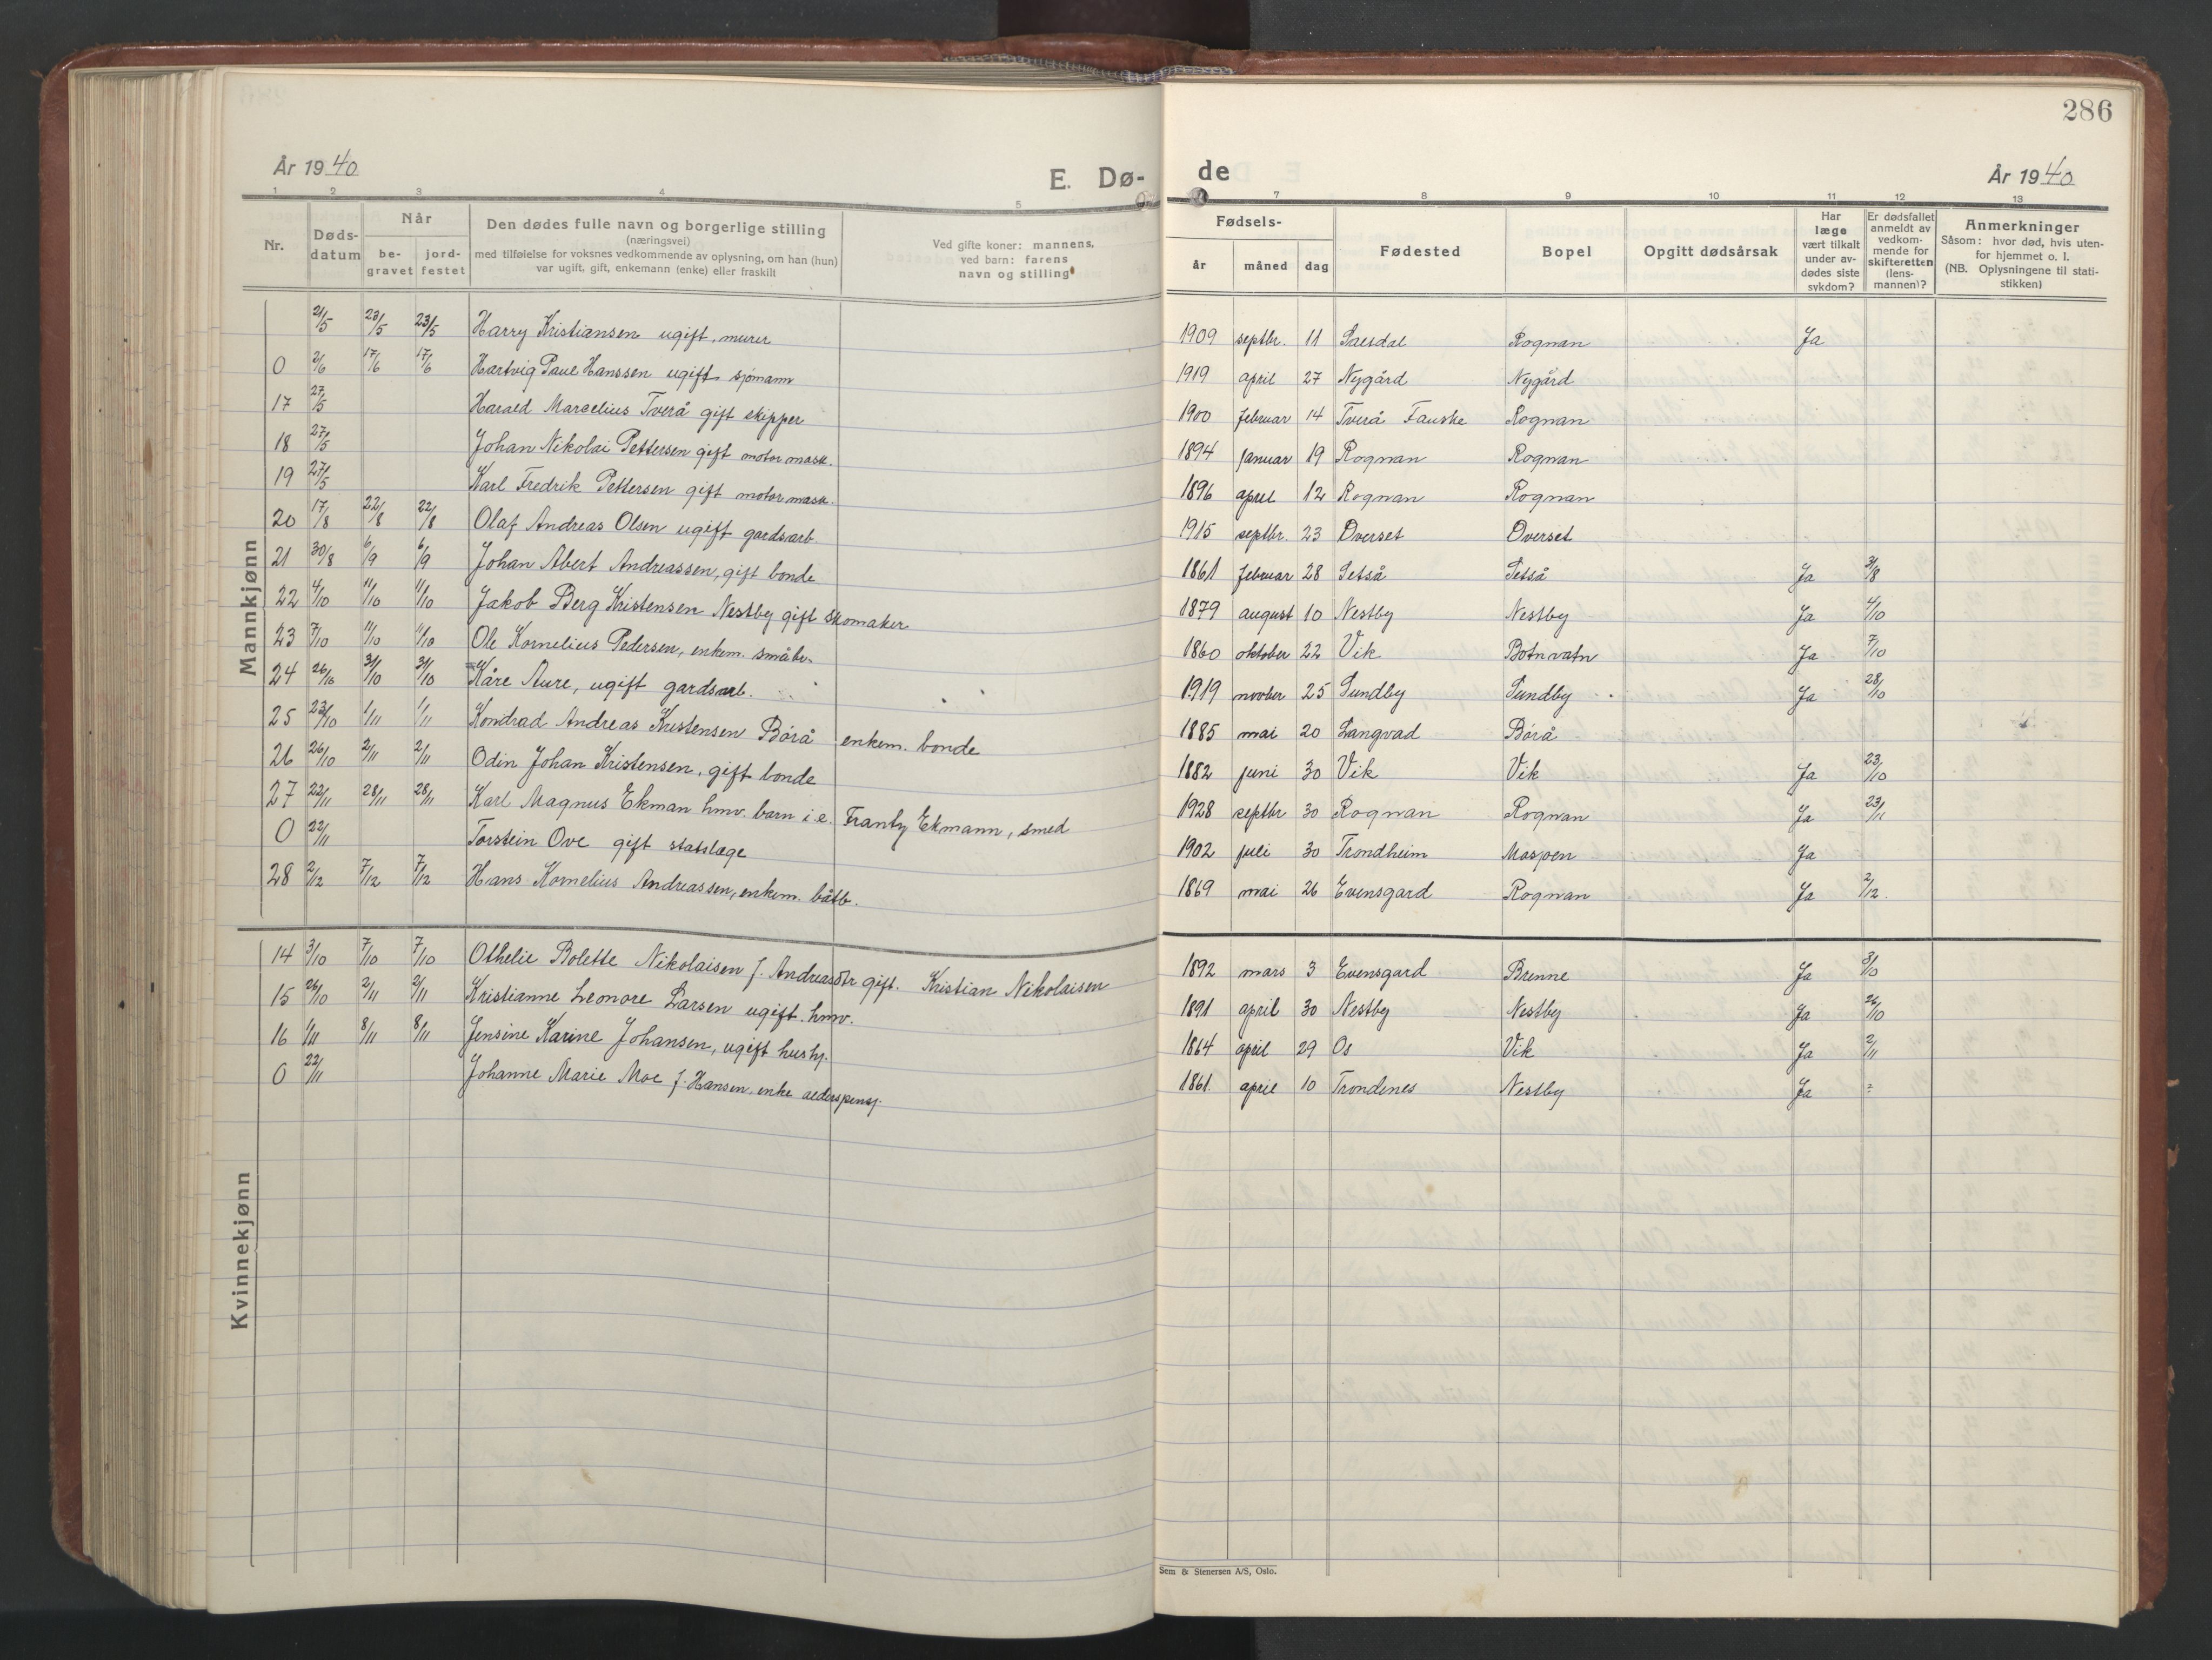 286
År 1940
E. Dø-
de
År 1940
1 2 3 4 5 7 8 9 10 11 12 13
Nr.
Døds-
datum
Når
be-
gravet
jord-
festet
Den dødes fulle navn og borgerlige stilling
(næringsvei)
med tilføielse for voksnes vedkommende av oplysning, om han (hun)
var ugift, gift, enkemann (enke) eller fraskilt
Ved gifte koner: mannens,
ved barn: farens
navn og stilling
Fødsels-
år måned dag
Fødested
Bopel
Opgitt dødsårsak
Har
læge
vært tilkalt
under av-
dødes siste
sykdom?
Er dødsfallet
anmeldt av
vedkom-
mende for
skifteretten
(lens-
mannen)?
Anmerkninger
Såsom: hvor død, hvis uten-
for hjemmet o. l.
(NB. Oplysningene til stati-
stikken)
Mannkjønn
21/5 23/5 23/5 Harry Kristiansen ugift, murer 1909 septbr. 11 Rognan Ja
0 2/6 17/6 17/6 Hartvig Paul Hanssen ugift sjömann 1919 april 27 Nygård Nygård
17 27/5 Harald Marcelius Tverå gift skipper 1900 februar 14 Tverå Fauske Rognan
18 27/5 Johan Nikolai Pettersen gift motormask. 1894 januar 19 Rognan Rognan
19 27/5 Karl Fredrik Pettersen gift motormask. 1896 april 12 Rognan Rognan
20 17/8 22/8 22/8 Olaf Andreas Olsen ugift gardsarb. 1915 septbr. 23 Överset Överset
21 30/8 6/9 6/9 Johan Abert Andreassen, gift bonde 1861 februar 28 Setså Setså Ja 31/8
22 4/10 11/10 11/10 Jakob Berg Kristensen Nestby gift skomaker 1879 august 10 Nestby Nestby Ja 4/10
23 7/10 11/10 11/10 Ole Kornelius Pedersen, enkem. småbr. 1860 oktober 22 Vik Botnvatn Ja 7/10
24 26/10 31/10 31/10 Kåre Aure, ugift gardsarb. 1919 novber 25 Sundby Sundby Ja 28/10
25 23/10 1/11 1/11 Kondrad Andreas Kristensen Börå enkem. bonde 1885 mai 20 Langvad Börå
26 26/10 2/11 2/11 Odin Johan Kristensen, gift bonde 1882 juni 30 Vik Vik Ja 23/10
27 22/11 28/11 28/11 Karl Magnus Ekman hmv. barn i.e. Frantz Ekmann, smed 1928 septbr 30 Rognan Rognan Ja 23/11
0 22/11 Torstein Ove gift statslæge 1902 juli 30 Trondheim Mospen Ja
28 2/12 7/12 7/12 Hans Kornelius Andreassen, enkem. båtb. 1869 mai 26 Evensgard Rognan Ja 2/12
Kvinnekjønn
14 3/10 7/10 7/10 Othelie Bolette Nikolaisen f. Andreasdtr gift. Kristian Nikolaisen 1892 mars 3 Evensgard Brenne Ja 3/10
15 26/10 2/11 2/11 Kristianne Leonore Larsen ugift. hmv. 1891 april 30 Nestby Nestby Ja 26/10
16 1/11 8/11 8/11 Jensine Karine Johansen, ugift hushj. 1864 april 29 Os Vik Ja 2/11
0 22/11 Johanne Marie Moe f. Hansen, enke alderspensj. 1861 april 10 Trondenes Nestby Ja
Sem & Stenersen A/S, Oslo.